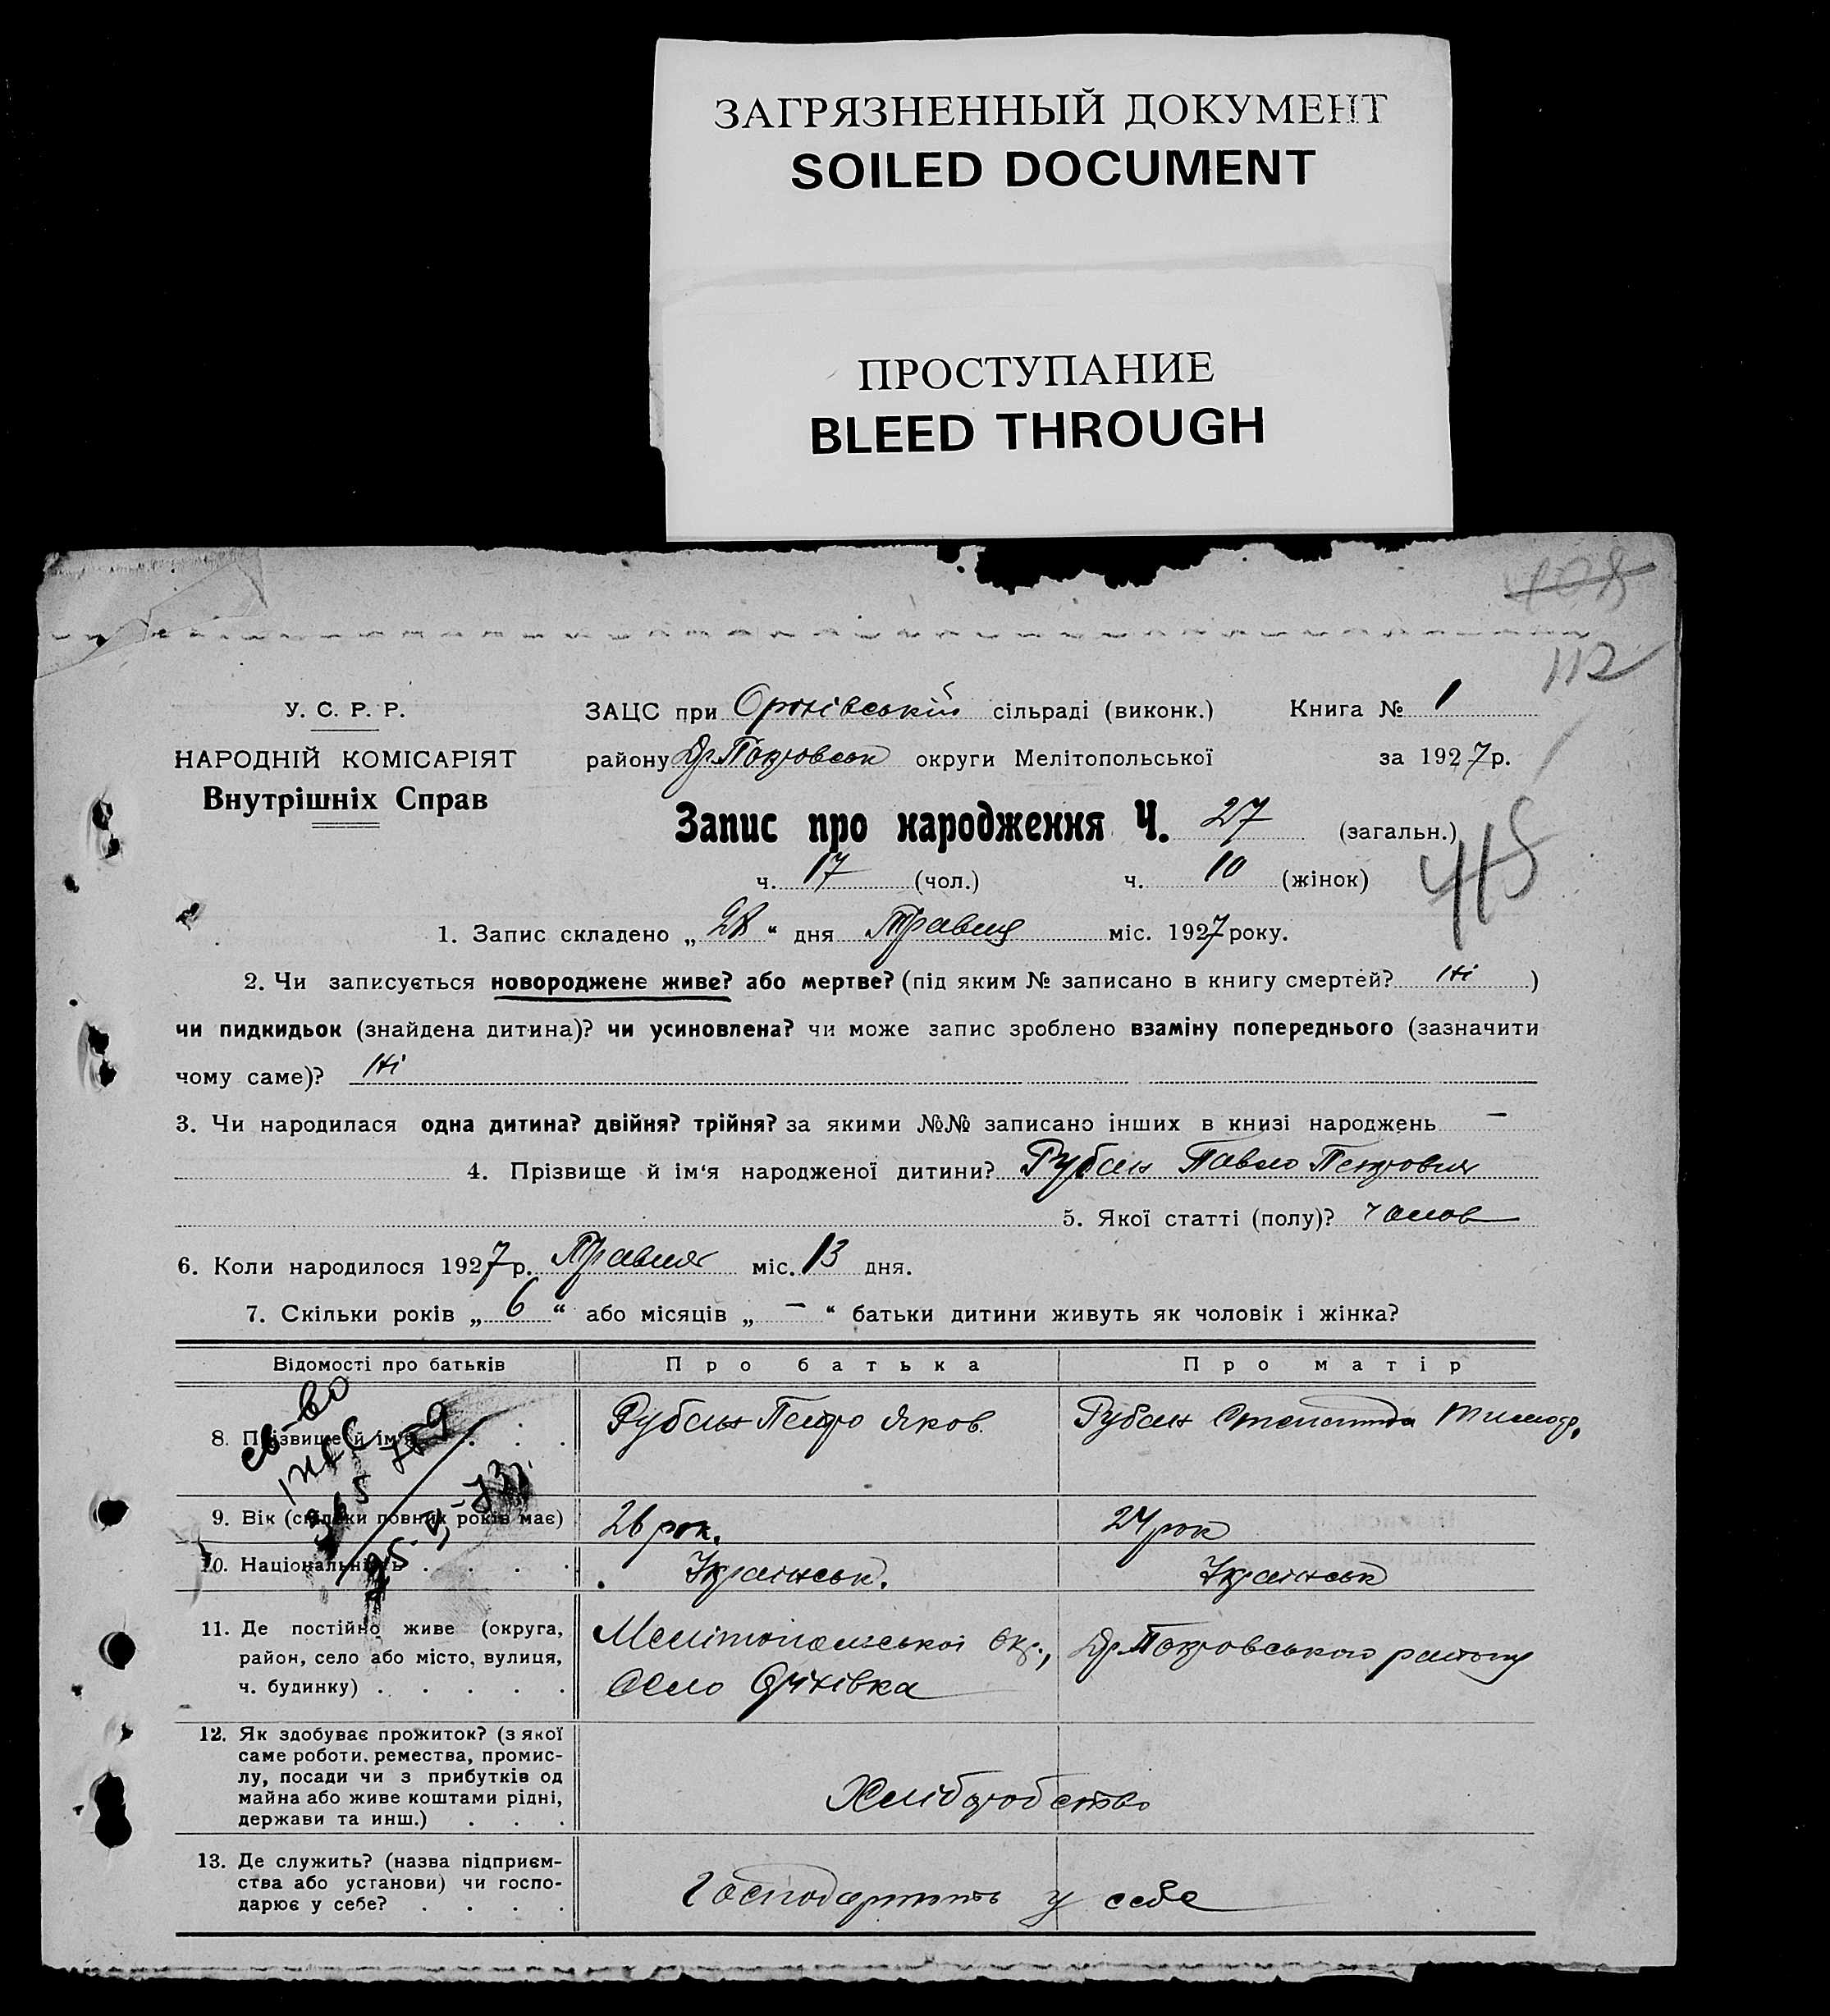 ЗАГРЯЗНЕННЫЙ ДОКУМЕНТ
SOILED DOCUMENT
ПРОСТУПАНИЕ
BLEED THROUGH
408
112
У. С. Р. Р.
НАРОДНІЙ КОМІСАРІЯТ
Внутрішніх Справ
ЗАЦС при сільраді (виконк.) Книга № 1
району Др. Покровськ округи Мелітопольської за 1927 р.
Запис про народження Ч. 27 (загальн.)
ч. 17 (чол.) ч. 10 (жінок)
1. Запис складено „ 28 “ дня Травня міс. 1927 року.
2. Чи записується новороджене живе? або мертве? (під яким № записано в книгу смертей? Ні )
чи пидкидьок (знайдена дитина)? чи усиновлена? чи може запис зроблено взаміну попереднього (зазначити
чому саме)? Ні
3. Чи народилася одна дитина? двійня? трійня? за якими №№ записано інших в книзі народжень —
4. Прізвище й ім‘я народженої дитини? Рубан Павло Петрович
5. Якої статті (полу)? чолов
6. Коли народилося 1927 р. Травня міс. 13 дня.
7. Скільки років „ 6 “ або місяців „ — “ батьки дитини живуть як чоловік і жінка?
Відомості про батьків Про батька Про матір
8. Прізвище й ім'я . . . Рубан Петро Яков. Рубан Степанида Тимоф.
9. Вік (скільки повних років має) 26 рок. 24 рок
10. Національність . . . . Українськ. Українськ
11. Де постійно живе (округа,
район, село або місто, вулиця,
ч. будинку) . . . . .
Мелітопольської окр., Др. Покровського району
село
12. Як здобуває прожиток? (з якої
саме роботи, ремества, промис-
лу, посади чи з прибутків од
майна або живе коштами рідні,
держави та инш.) . . .
Хліборобство
13. Де служить? (назва підприєм-
ства або установи) чи госпо-
дарює у себе? . . . .
Господарюють у себе